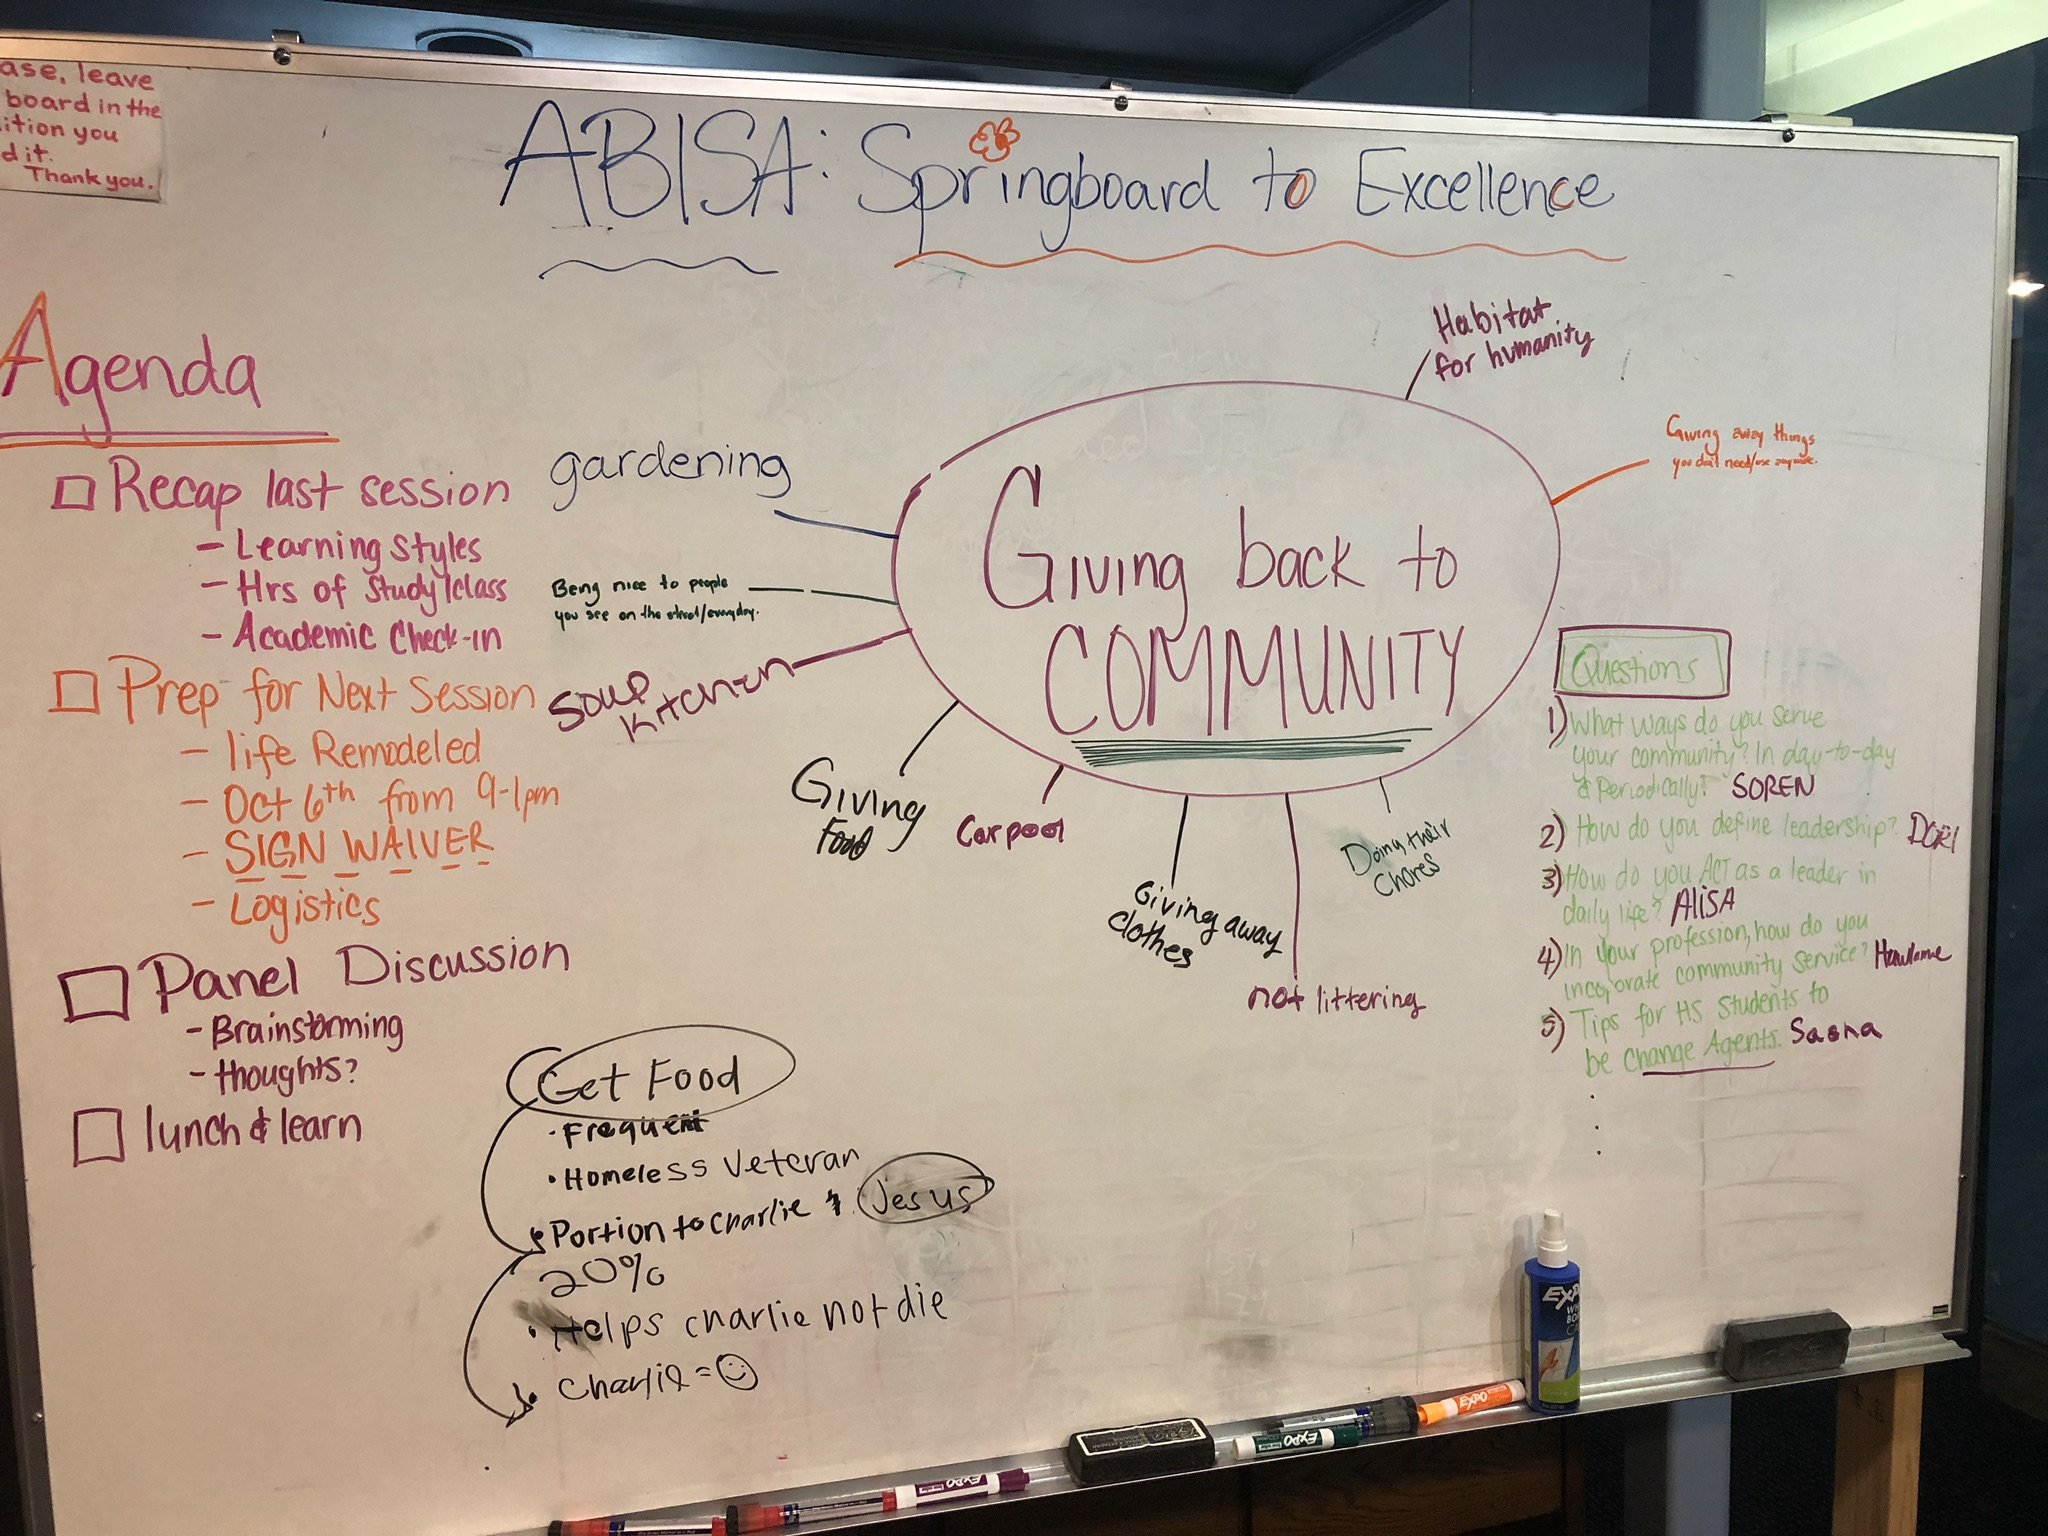 ase, leave
board in the
ition you
d it.
Thank you.
ABISA: Springboard to Excellence
Agenda
Recap last session
- Learning Styles
- Hrs of Study/class
- Academic Check-in
Prep for Next Session
- life Remodeled
- Oct 6th from 9-1pm
- SIGN WAIVER
- Logistics
Panel Discussion
- Brainstorming
- thoughts?
lunch & learn
Giving back to
COMMUNITY
Habitat
for humanity
Giving away things
you don't need/use anymore.
gardening
Being nice to people
you see on the street/everyday.
Soup
Kitchen
Giving
Food
Carpool
Giving away
clothes
not littering
Doing their
Chores
Questions
1) What ways do you serve
your community? In day-to-day
& Periodically? SOREN
2) How do you define leadership? DORI
3) How do you ACT as a leader in
daily life? AliSA
4) In your profession, how do you
incorporate community service?
5) Tips for HS students to
be change Agents.
Get Food
· Frequent
· Homeless Veteran
· Portion to charlie & Jesus
20%
· Helps charlie not die
· Charlie =
EXPO
EXPO
EXPO
EXPO